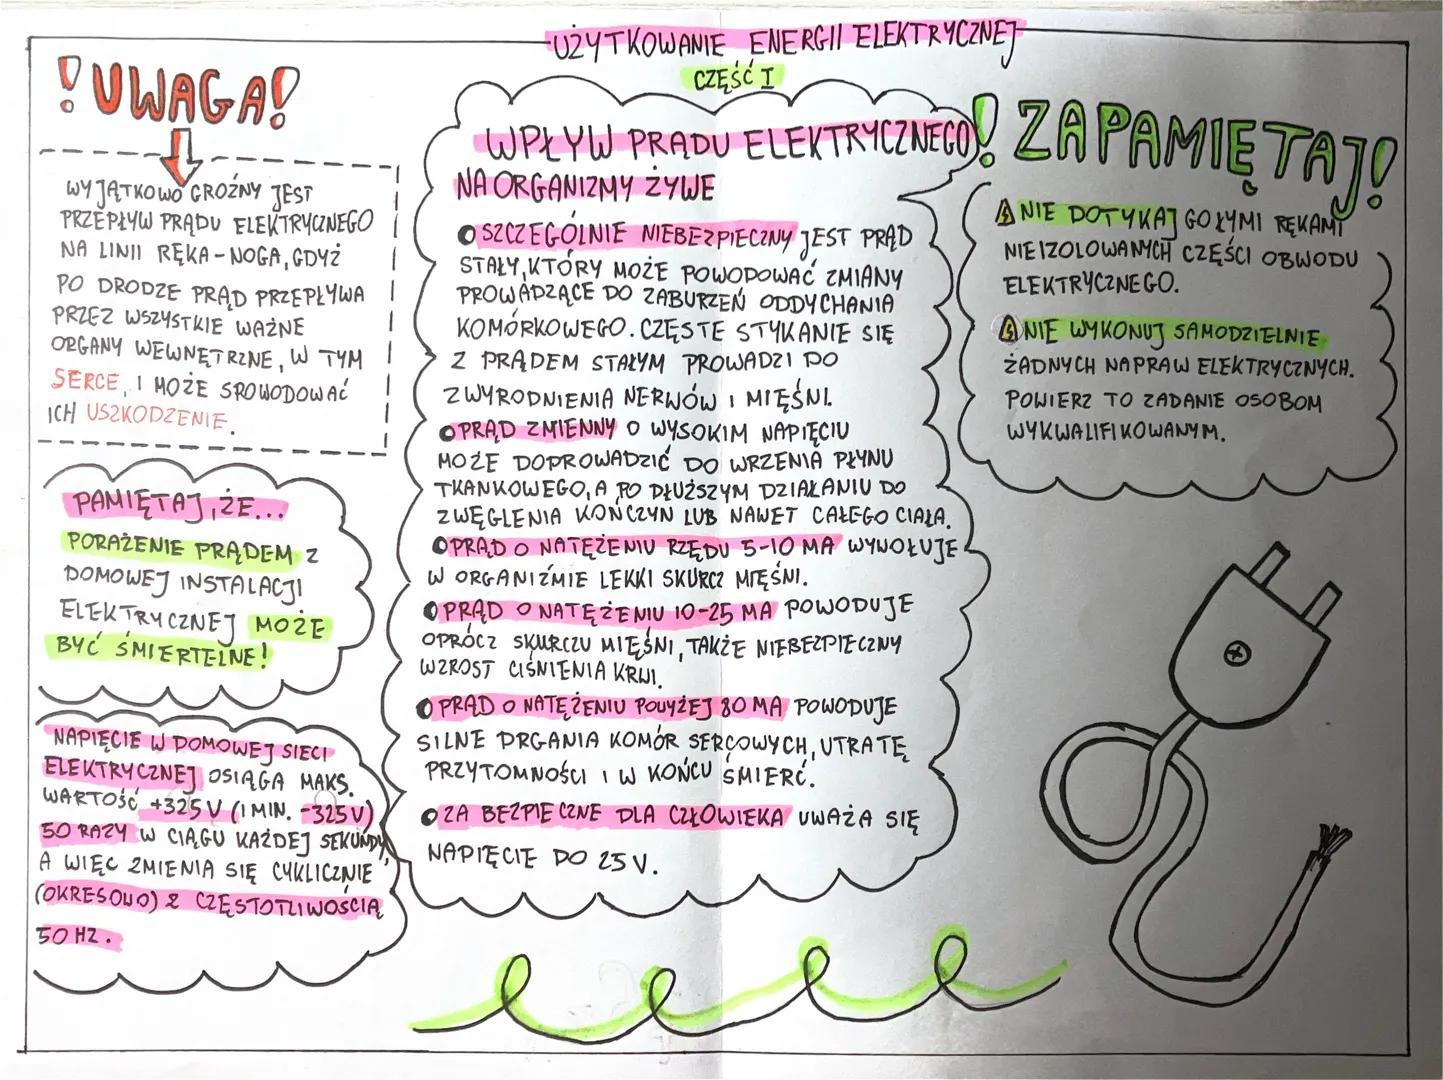 UŻYTKOWANIE ENERGII ELEKTRYCZNEJ
CZĘŚĆ I
! UWAGA!
WYJĄTKOWO GROŹNY JEST
PRZEPŁYW PRĄDU ELEKTRYCZNEGO
NA LINII RĘKA-NOGA, GDYŻ
PO DRODZE PRĄD PRZEPŁYWA
PRZEZ WSZYSTKIE WAŻNE
ORGANY WEWNĘTRZNE, W TYM
SERCE, I MOŻE SPOWODOWAĆ
ICH USZKODZENIE.
PAMIĘTAJ, ŻE...
PORAŻENIE PRĄDEM Z
DOMOWEJ INSTALACJI
ELEKTRYCZNEJ MOŻE
BYĆ ŚMIERTELNE!
NAPIĘCIE W DOMOWEJ SIECI
ELEKTRYCZNEJ OSIĄGA MAKS.
WARTOŚĆ +325 V (I MIN. -325 V)
50 RAZY W CIĄGU KAŻDEJ SEKUNDY,
A WIĘC ZMIENIA SIĘ CYKLICZNIE
(OKRESOWO) Z CZĘSTOTLIWOŚCIĄ
50 HZ.
WPŁYW PRĄDU ELEKTRYCZNEGO
NA ORGANIZMY ŻYWE
SZCZEGÓLNIE NIEBEZPIECZNY JEST PRĄD
STAŁY, KTÓRY MOŻE POWODOWAĆ ZMIANY
PROWADZĄCE DO ZABURZEŃ ODDYCHANIA
KOMÓRKOWEGO. CZĘSTE STYKANIE SIĘ
Z PRĄDEM STAŁYM PROWADZI DO
ZWYRODNIENIA NERWÓW I MIĘŚNI.
PRĄD ZMIENNY O WYSOKIM NAPIĘCIU
MOŻE DOPROWADZIĆ DO WRZENIA PŁYNU
TKANKOWEGO, A PO DŁUŻSZYM DZIAŁANIU DO
ZWĘGLENIA KOŃCZYN LUB NAWET CAŁEGO CIAŁA.
PRĄD O NATĘŻENIU RZĘDU 5-10 MA WYWOŁUJE
W ORGANIZMIE LEKKI SKURCZ MIĘŚNI.
PRĄD O NATĘŻENIU 10-25 MA POWODUJE
OPRÓCZ SKURCZU MIĘŚNI, TAKŻE NIEBEZPIECZNY
WZROST CIŚNIENIA KRWI.
PRĄD O NATĘŻENIU POWYŻEJ 80 MA POWODUJE
SILNE DRGANIA KOMÓR SERCOWYCH, UTRATĘ
PRZYTOMNOŚCI I W KOŃCU ŚMIERĆ.
ZA BEZPIECZNE DLA CZŁOWIEKA UWAŻA SIĘ
NAPIĘCIE DO 25 V.
! ZAPAMIĘTAJ!
NIE DOTYKAJ GOŁYMI RĘKAMI
NIEIZOLOWANYCH CZĘŚCI OBWODU
ELEKTRYCZNEGO.
NIE WYKONUJ SAMODZIELNIE
ŻADNYCH NAPRAW ELEKTRYCZNYCH.
POWIERZ TO ZADANIE OSOBOM
WYKWALIFIKOWANYM.